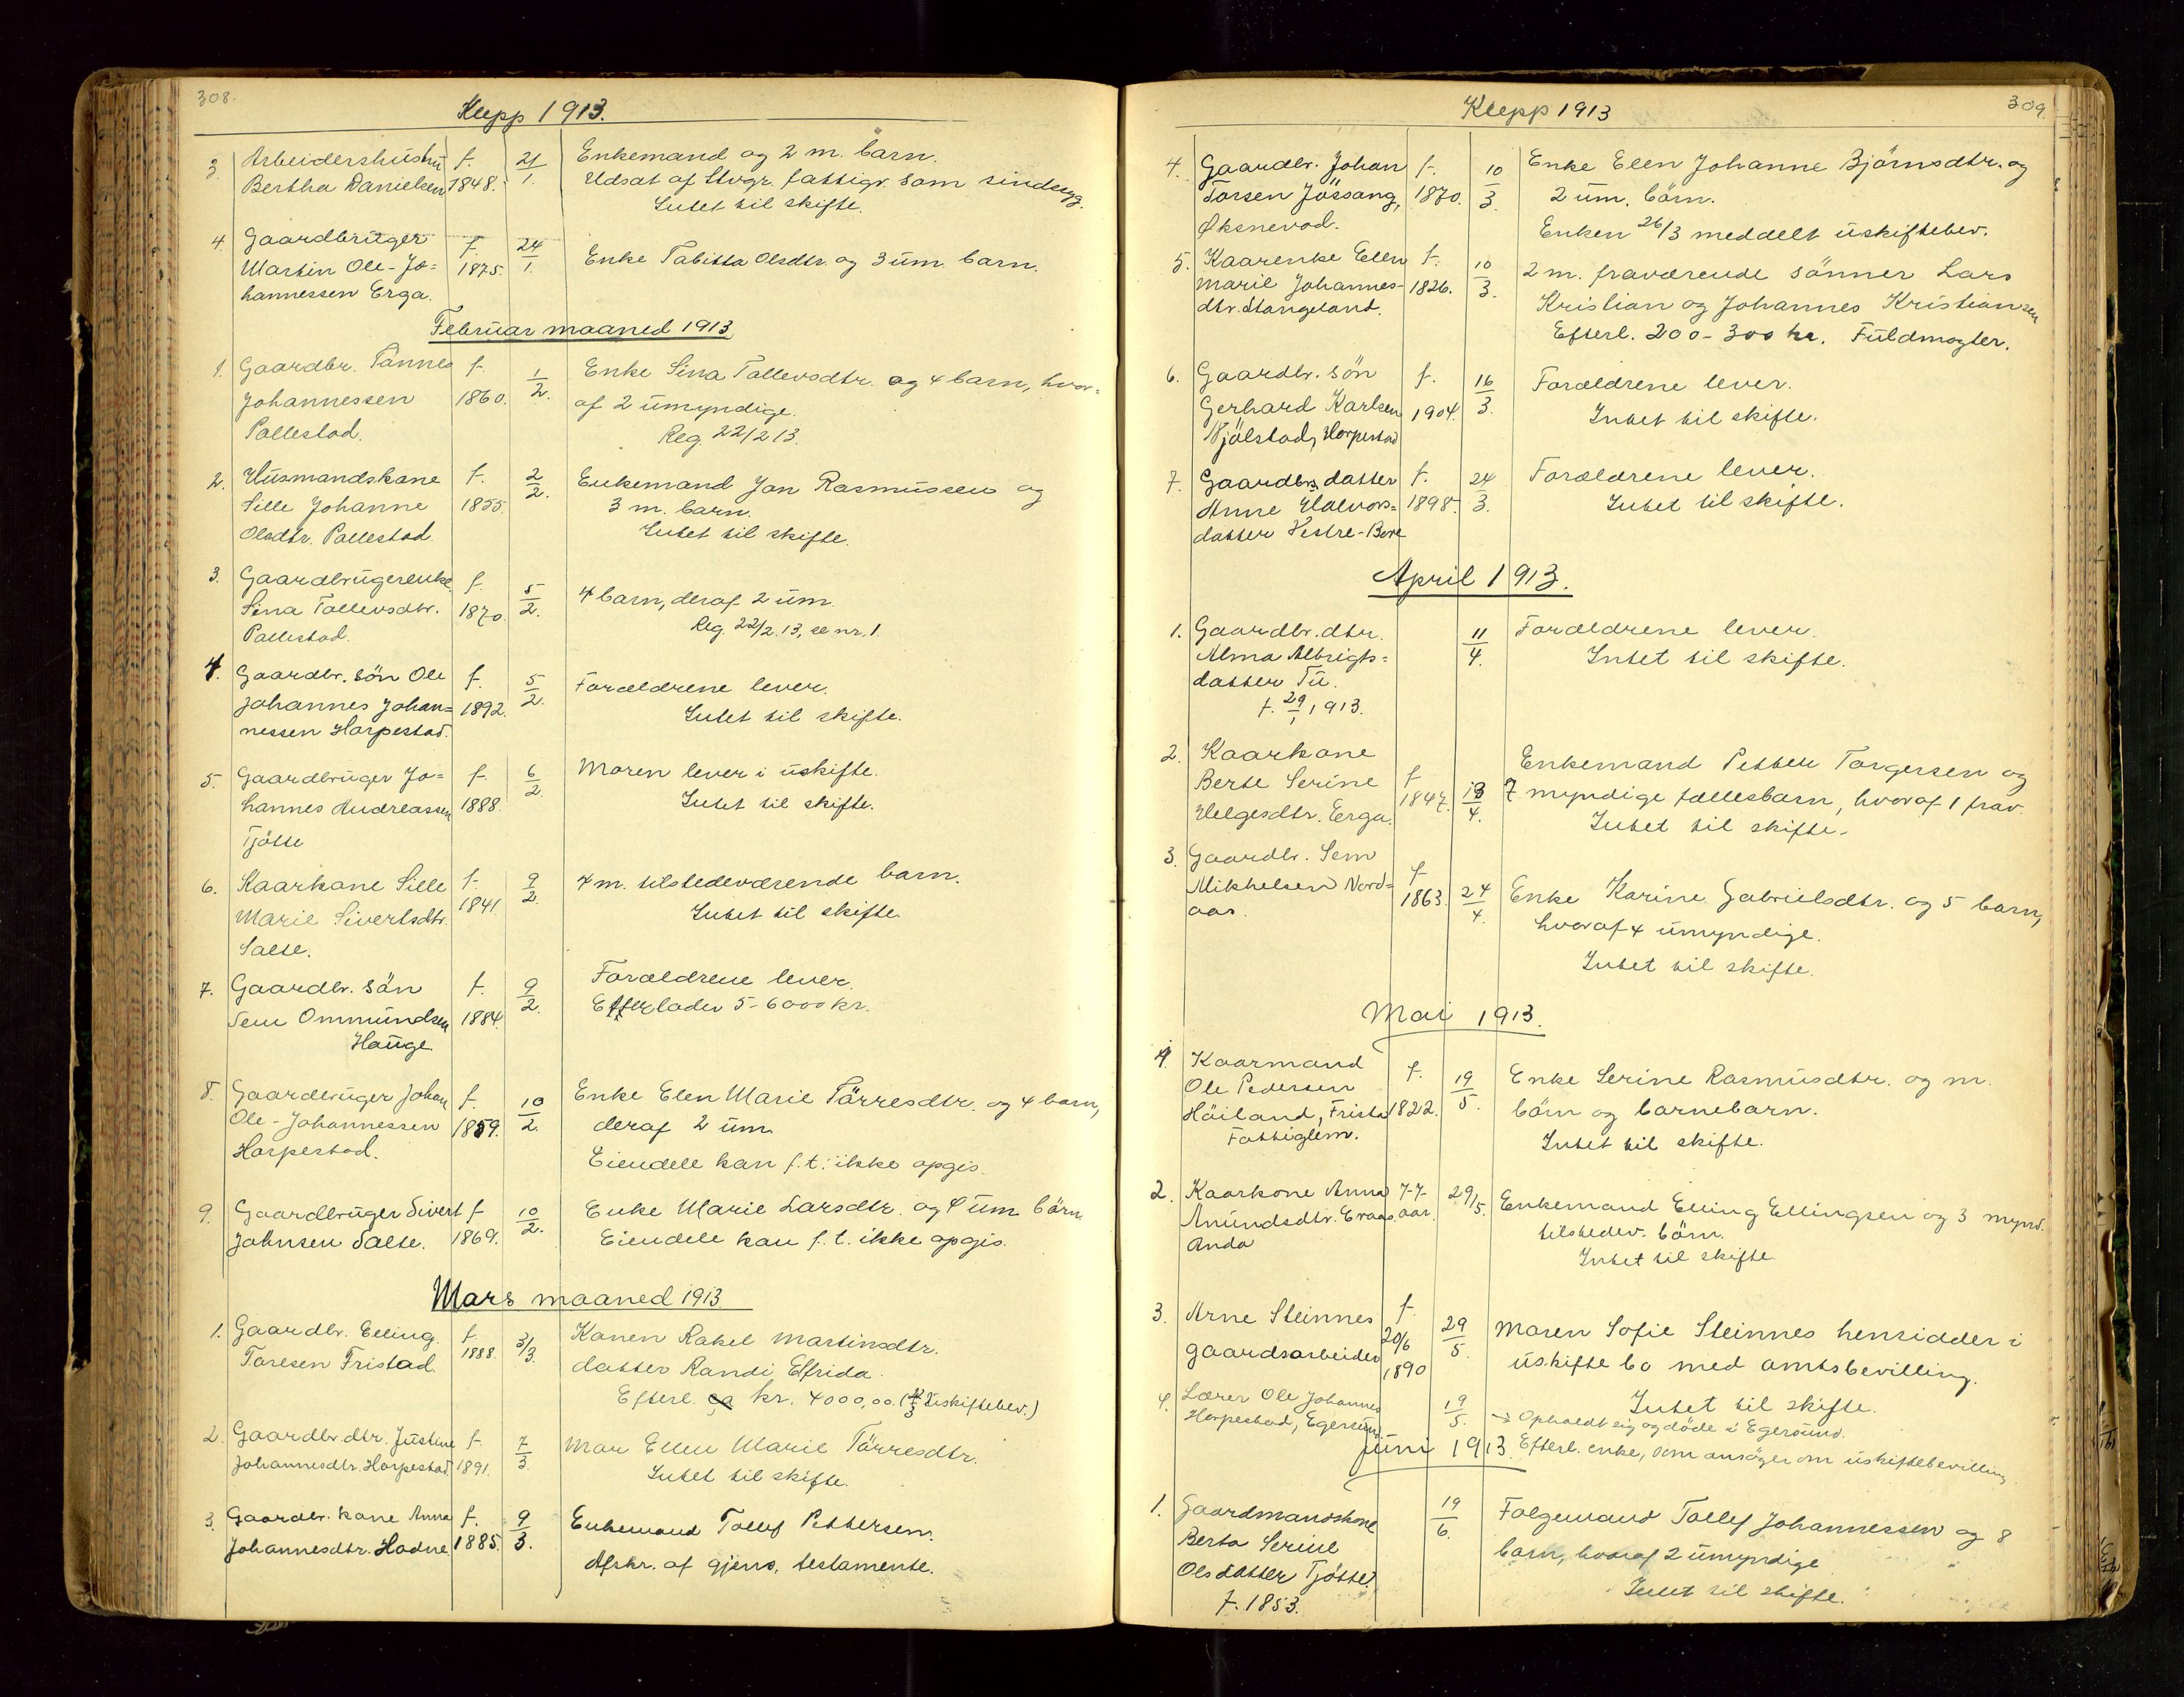 308.
Klepp 1913.
3. Arbeidershustru f. 21/1. Enkemand og 2 m. barn.
Bertha Danielsen 1848. Udsat af Stvgr. fattigv. som sindssyg.
Intet til skifte.
4. Gaardbruger f. 24/1.
Martin Ole-Jo= 1875. Enke Tabitta Olsdtr. og 3 um. barn.
hannessen Erga.
Februar maaned 1913.
1. Gaardbr. Tønnes f. 1/2. Enke Sina Tollevsdtr. og 4 barn, hvor=
Johannessen 1860. af 2 umyndige.
Pollestad. Reg. 22/2 13.
2. Husmandskone f. 2/2. Enkemand Jan Rasmussen og
Sille Johanne 1855. 3 m. barn.
Olsdtr. Pollestad. Intet til skifte.
3. Gaardbrugerenke f. 5/2. 4 barn, deraf 2 um.
Sina Tollevsdtr. 1870. Reg. 22/2. 13, se nr. 1.
Pollestad.
4. Gaardbr. sön Ole f. 5/2. Forældrene lever.
Johannes Johan= 1892. Intet til skifte.
nessen Horpestad.
5. Gaardbruger Jo= f. 6/2. Moren lever i uskifte.
hannes Andreassen 1888. Intet til skifte.
Tjötte
6. Kaarkone Sille f. 9/2. 4 m. tilstedeværende barn.
Marie Sivertsdtr. 1841. Intet til skifte.
Salte.
7. Gaardbr. sön f. 9/2. Forældrene lever.
Sem Ommundsen 1884. Efterlader 5-6000 kr.
Hauge.
8. Gaardbruger Johan f. 10/2. Enke Elen Marie Törresdtr. og 4 barn,
Ole-Johannessen 1859. deraf 2 um.
Horpestad. Eiendele kan f. t. ikke opgis.
9. Gaardbruger Sivert f 10/2. Enke Marie Larsdtr. og 4 um börn.
Johnsen Salte. 1869. Eiendele kan f. t. ikke opgis.
Mars maaned 1913
1. Gaardbr. Elling f. 3/3. Konen Rakel Martinsdtr.
Toresen Fristad. 1888. datter Randi Elfrida.
Efterl. ca kr. 4000,00. (Uskiftebev.)
2. Gaardbr dtr. Justine f. 7/3. Mor Ellen Marie Törresdtr.
Johannesdtr. Horpestad. 1891. Intet til skifte.
3. Gaardbr. kone Anna f. 9/3. Enkemand Tollef Pettersen.
Johannesdtr. Hodne. 1885. Afskr. af gjens. testamente.
309.
Klepp 1913
4. Gaardbr. Johan f. 10/3. Enke Elen Johanne Björnsdtr. og
Torsen Jössang, 1870. 2 um. börn.
Øksnevad. Enken 26/3 meddelt uskiftebev.
5. Kaarenke Ellen f. 10/3. 2 m. fraværende sönner Lars
Marie Johannes- 1826. Kristian og Johannes Kristiansen
dtr. Stangeland. Efterl. 200-300 kr. Fuldmagter.
6. Gaardbr. sön f. 16/3. Forældrene lever.
Gerhard Karlsen 1904. Intet til skifte.
Njölstad, Horpestad
7. Gaardbrs. datter f. 24/3. Forældrene lever.
Anne Halvors= 1898. Intet til skifte.
datter Vestre-Bore
April 1913.
1. Gaardbr. dtr. 11/4. Forældrene lever.
Alma Albrigts= Intet til skifte.
datter Tu.
f. 29/1 1913.
2. Kaarkone Enkemand Petter Torgersen og
Berte Serine f 1847. 13/4. 7 myndige fællesbarn, hvoraf 1 frav.
Helgesdtr. Erga. Intet til skifte.
3. Gaardbr. Sem f
Mikkelsen Nord= 1863. 24/4. Enke Karine Gabrielsdtr. og 5 barn,
aas. hvoraf 4 umyndige.
Intet til skifte.
Mai 1913.
1. Kaarmand f. 19/5. Enke Serine Rasmusdtr. og m.
Ole Pedersen 1822. börn og barnebarn.
Höiland, Fristad Intet til skifte.
Fattiglem.
2. Kaarkone Anna 77 29/5. Enkemand Elling Ellingsen og 3 mynd.
Anundsdtr. aar. tilstedev. börn.
Anda Intet til skifte.
3. Arne Steinnes f. 29/5. Moren Sofie Steinnes hensidder i
gaardsarbeider 20/6 1890 uskifte bo med amtsbevilling.
Intet til skifte.
4. Lærer Ole Johannes 19/5. Opholdt sig og döde i Egersund.
Horpestad, Egersund. Efterl. enke, som ansöger om uskiftebevilling
Juni 1913.
1. Gaardmandskone 19/6. Folgemand Tollef Johannessen og 8
Berta Serine barn, hvoraf 2 umyndige
Olsdatter Tjötte. Intet til skifte.
f. 1853.